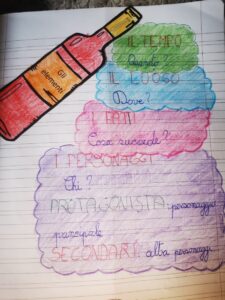 Gli
elementi
IL TEMPO
Quando?
IL LUOGO
Dove?
I FATTI
Cosa succede?
I PERSONAGGI
Chi?
PROTAGONISTA: personaggio
principale
SECONDARI: altri personaggi